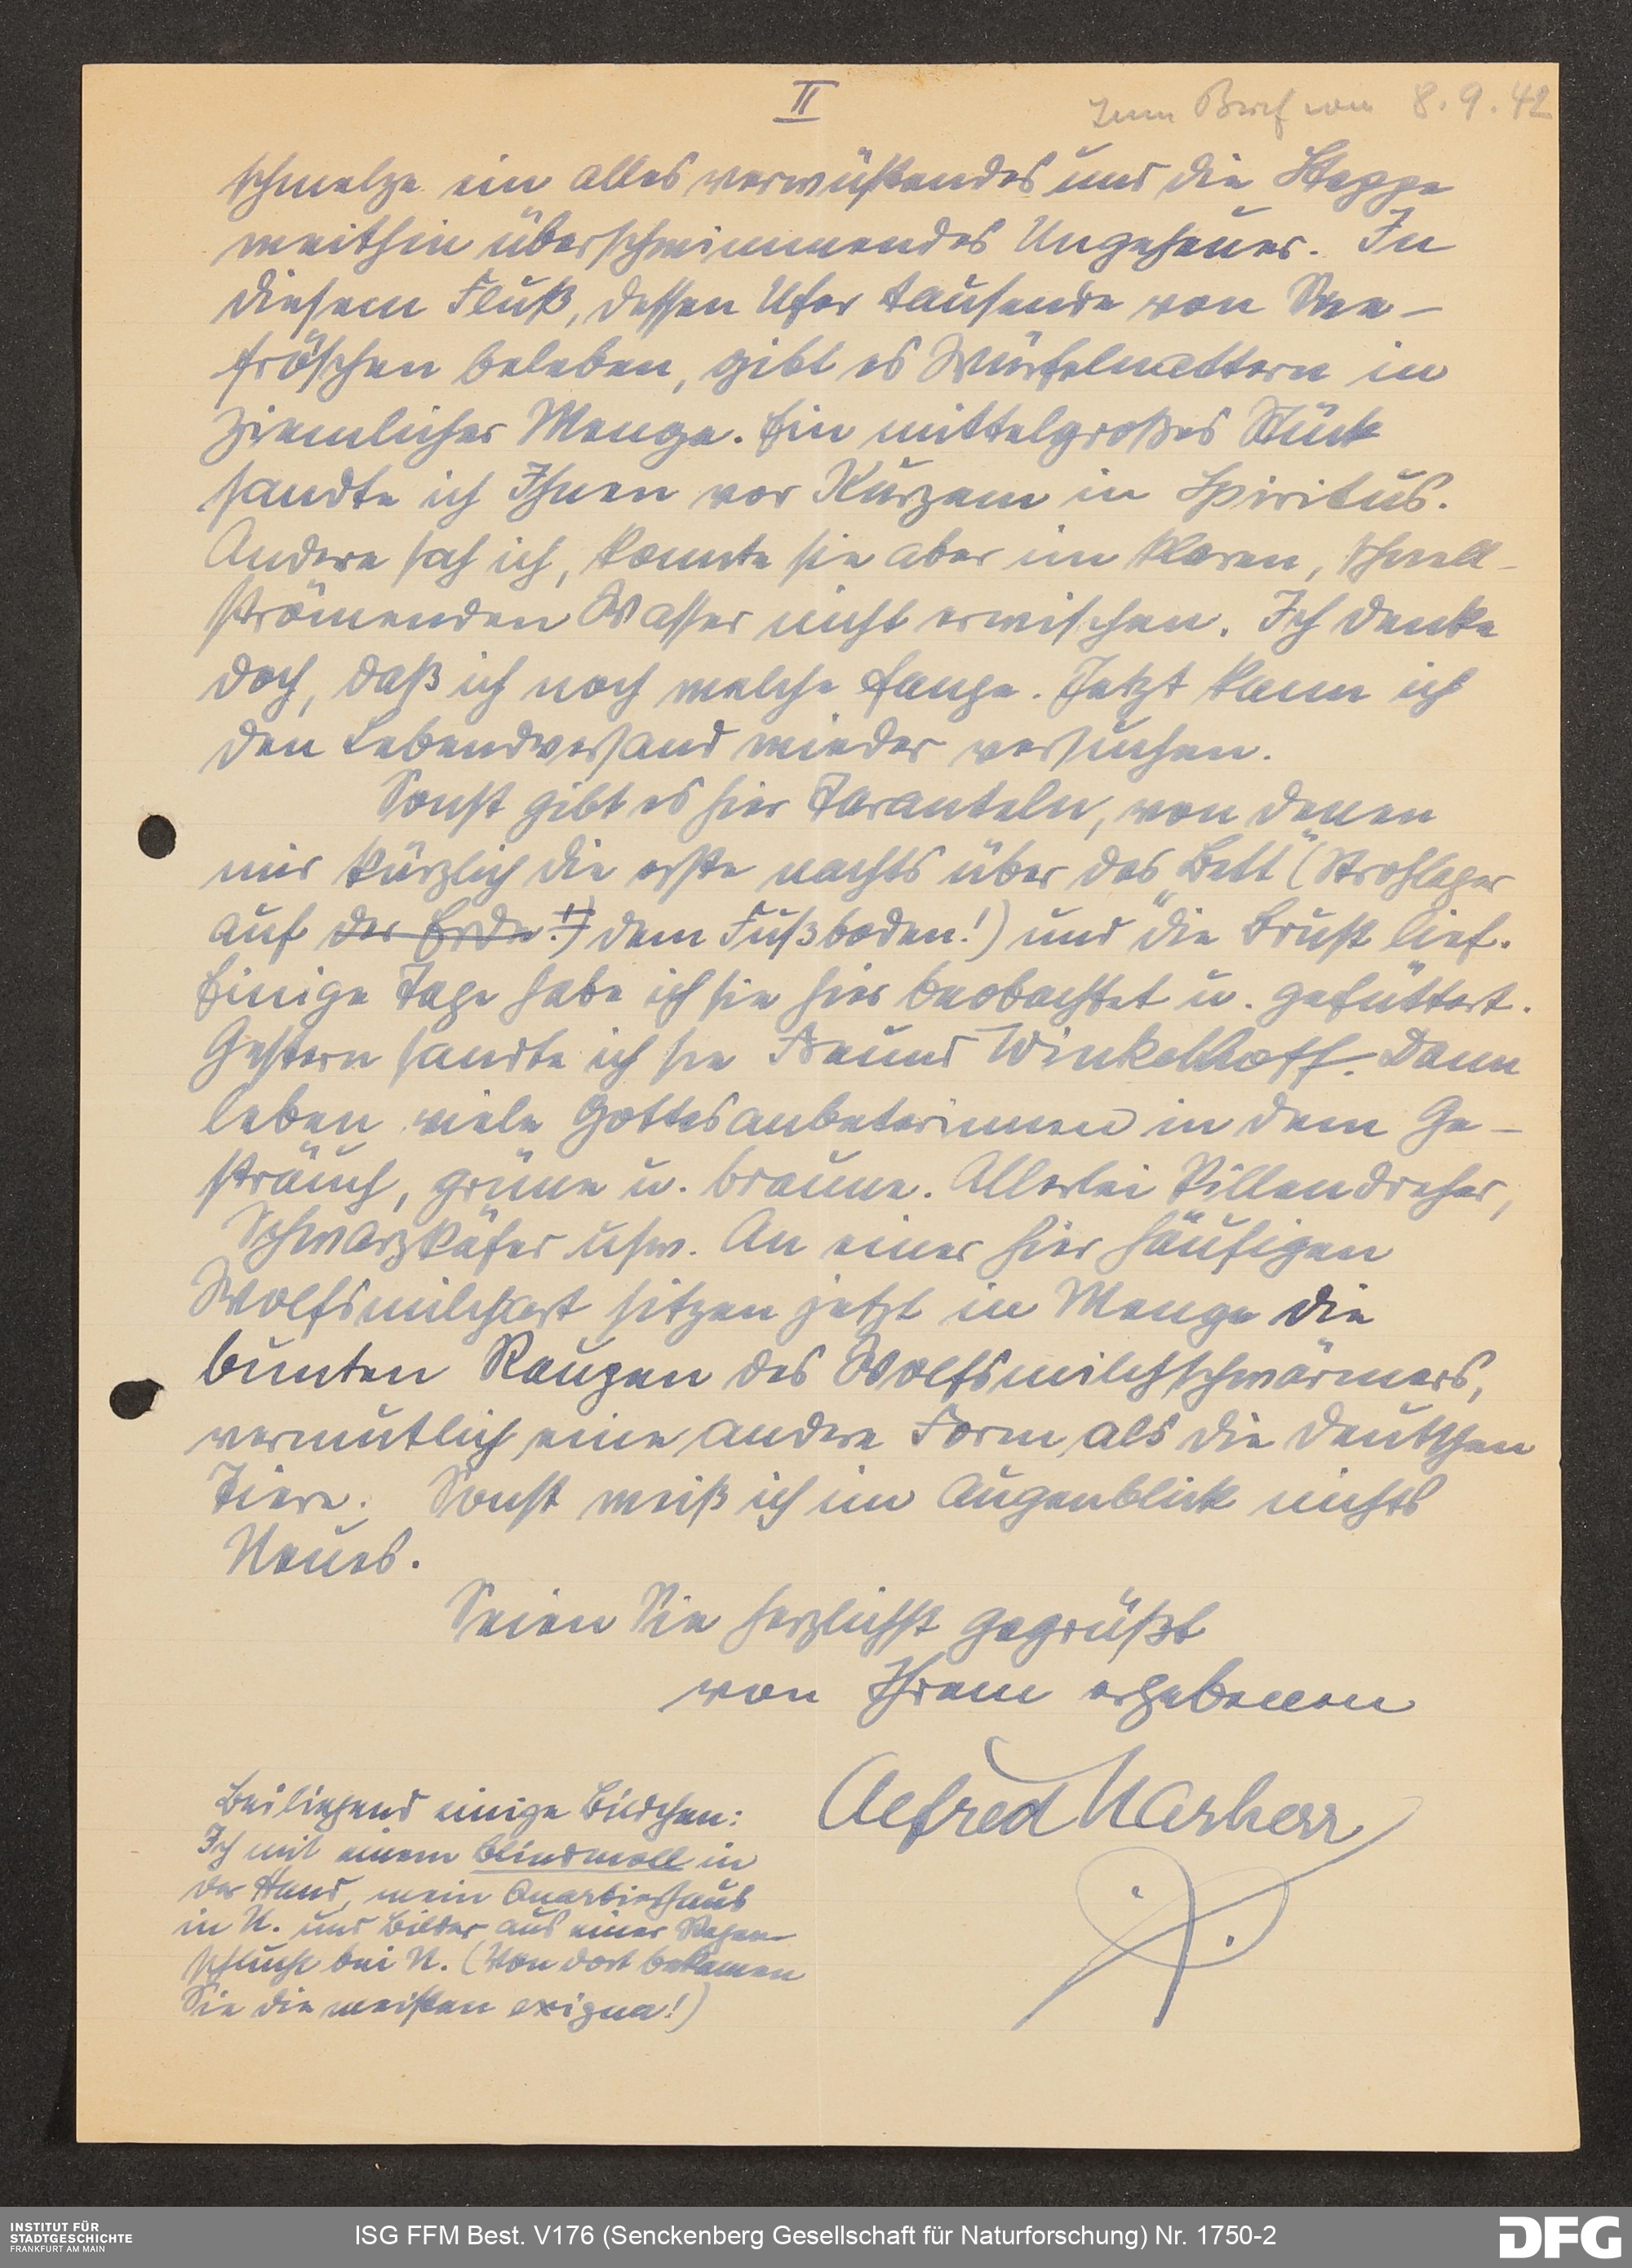 II
Zum Brief von 8.9.42
schmelze ein alles verwüstendes und die Steppe
weithin überschwimmendes Ungeheuer. In
diesem Fluß, dessen Ufer tausende von See-
fröschen beleben, gibt es Würfelnattern in
ziemlicher Menge. Ein mittelgroßes Stück
sandte ich Ihnen vor Kurzem in Spiritus.
Andere sah ich, konnte sie aber im klaren, schnell-
strömenden Wasser nicht erwischen. Ich denke
doch, daß ich noch welche fange. Jetzt kann ich
den Lebendversand wieder versuchen.
Sonst gibt es hier Taranteln, von denen
mir kürzlich die erste nachts über das „Bett" (Strohlager
auf der Erde!!) dem Fußboden!) und die Brust lief.
Einige Tage habe ich sie hier beobachtet u. gefüttert.
Gestern sandte ich sie Freund Winkelhoff. Dann
leben viele Gottesanbeterinnen in dem Ge-
sträuch, grüne u. braune. Allerlei Pillendreher,
Schwarzkäfer usw. An einer hier häufigen
Wolfsmilchart sitzen jetzt in Menge die
bunten Raupen des Wolfsmilchschwärmers,
vermutlich eine andere Form als die deutschen
Tiere. Sonst weiß ich im Augenblick nichts
Neues.
Seien Sie herzlichst gegrüßt
von Ihrem ergebenen
Alfred
Beiliegend einige Bildchen:
Ich mit einem Blindmoll in
der Hand, mein Quartierhaus
in N. und Bilder aus einer Regen-
schlucht bei N. (Von dort bekamen
Sie die meisten exigua!)
INSTITUT FÜR
STADTGESCHICHTE
FRANKFURT AM MAIN
ISG FFM Best. V176 (Senckenberg Gesellschaft für Naturforschung) Nr. 1750-2
DFG